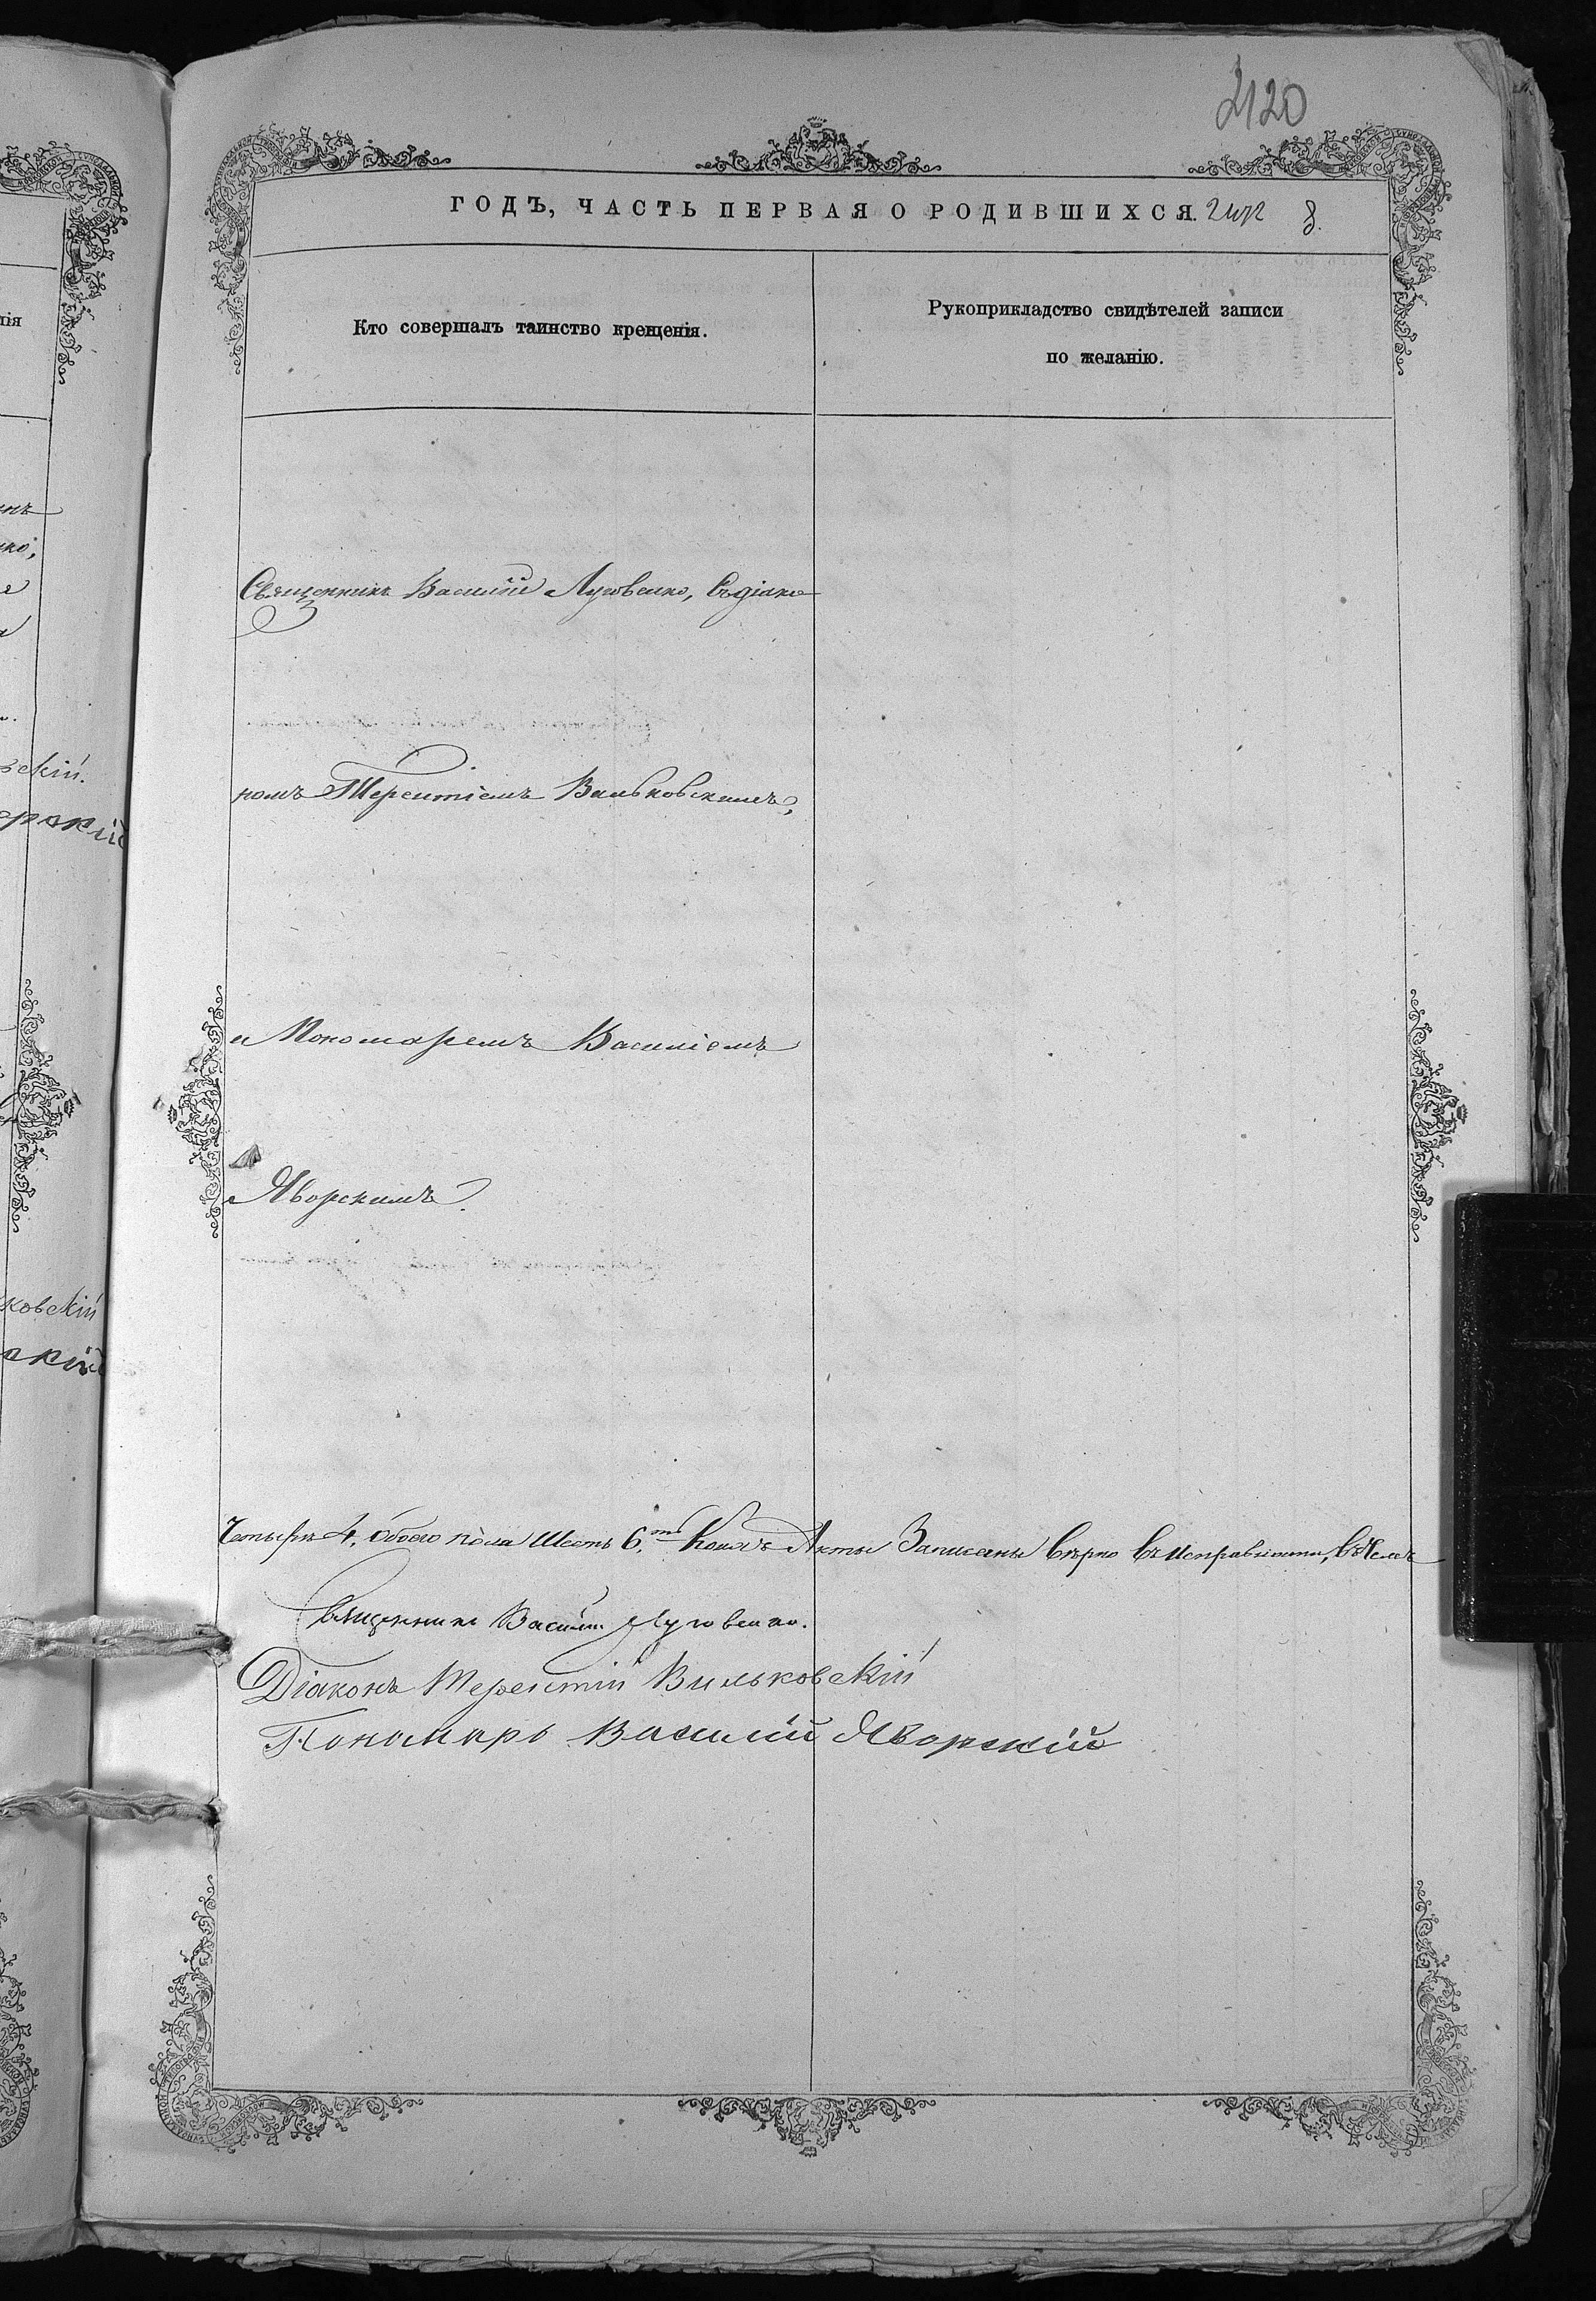 2120
ГОДЪ, ЧАСТЬ ПЕРВАЯ О РОДИВШИХСЯ. 8.
Кто совершалъ таинство крещенія.
Рукоприкладство свидѣтелей записи
по желанію.
Священникъ Василій Луговенко, съ діако
номъ Терентіемъ Вильковскимъ,
и Пономаремъ Василіемъ
Яворскимъ.
Четыре 4, обоего пола Шесть 6.ть Коихъ Акты Записаны вѣрно въ исправности, въ чемъ
Священникъ Василій Луговенко.
Діаконъ Терентій Вильковскій
Пономарь Василій Яворскій
нія
вскій.
рскій
ковскій
скій